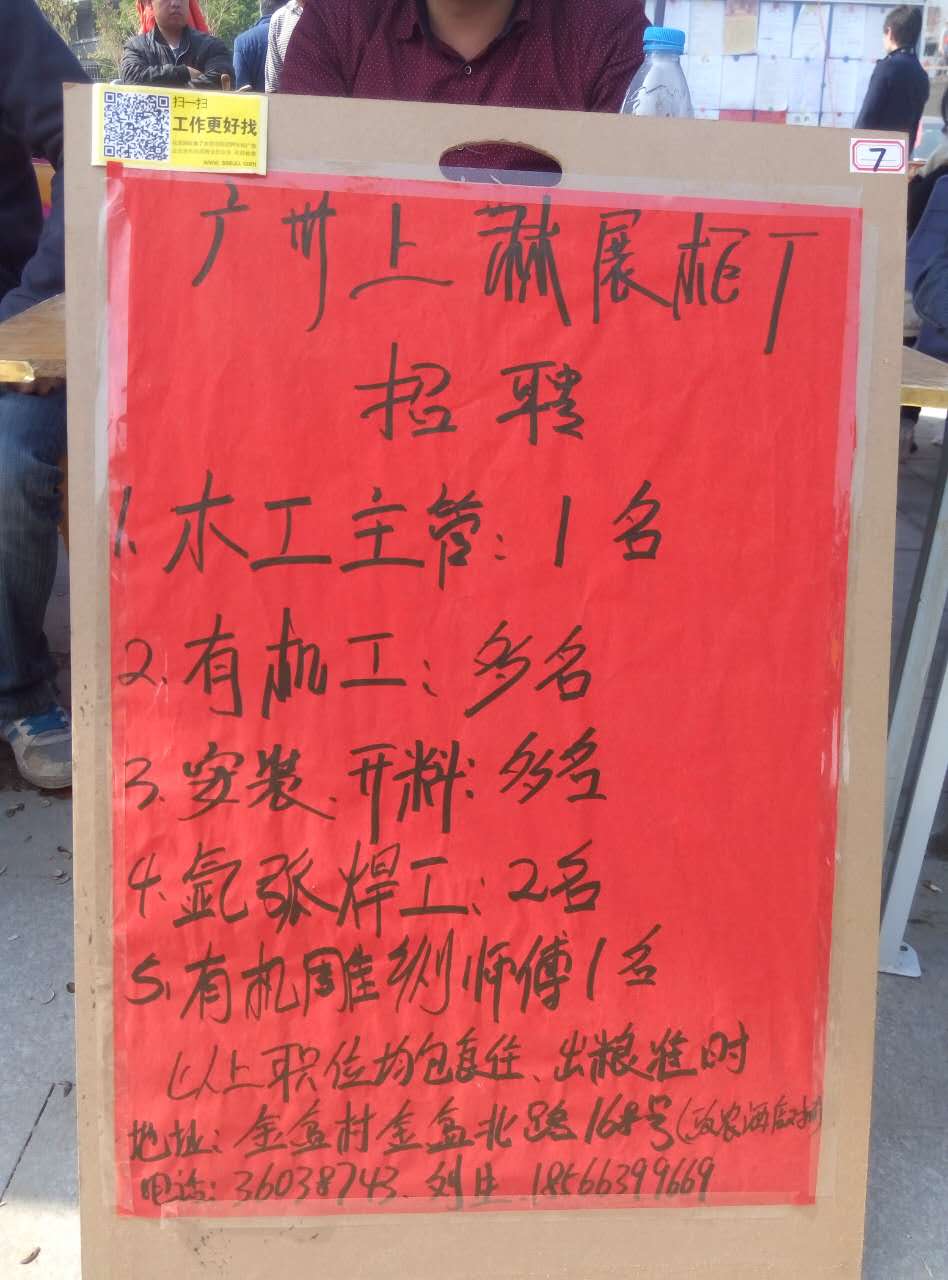 扫一扫
工作更好找
7
广州上淋展柜厂
招聘
1.木工主管：1名
2.有机工：多名
3.安装、开料：多名
4.氩弧焊工：2名
5.有机雕刻师傅1名
以上职位均包食住、出粮准时
地址：金盆村金盆北路168号(
电话：36038743、刘生 18566399669